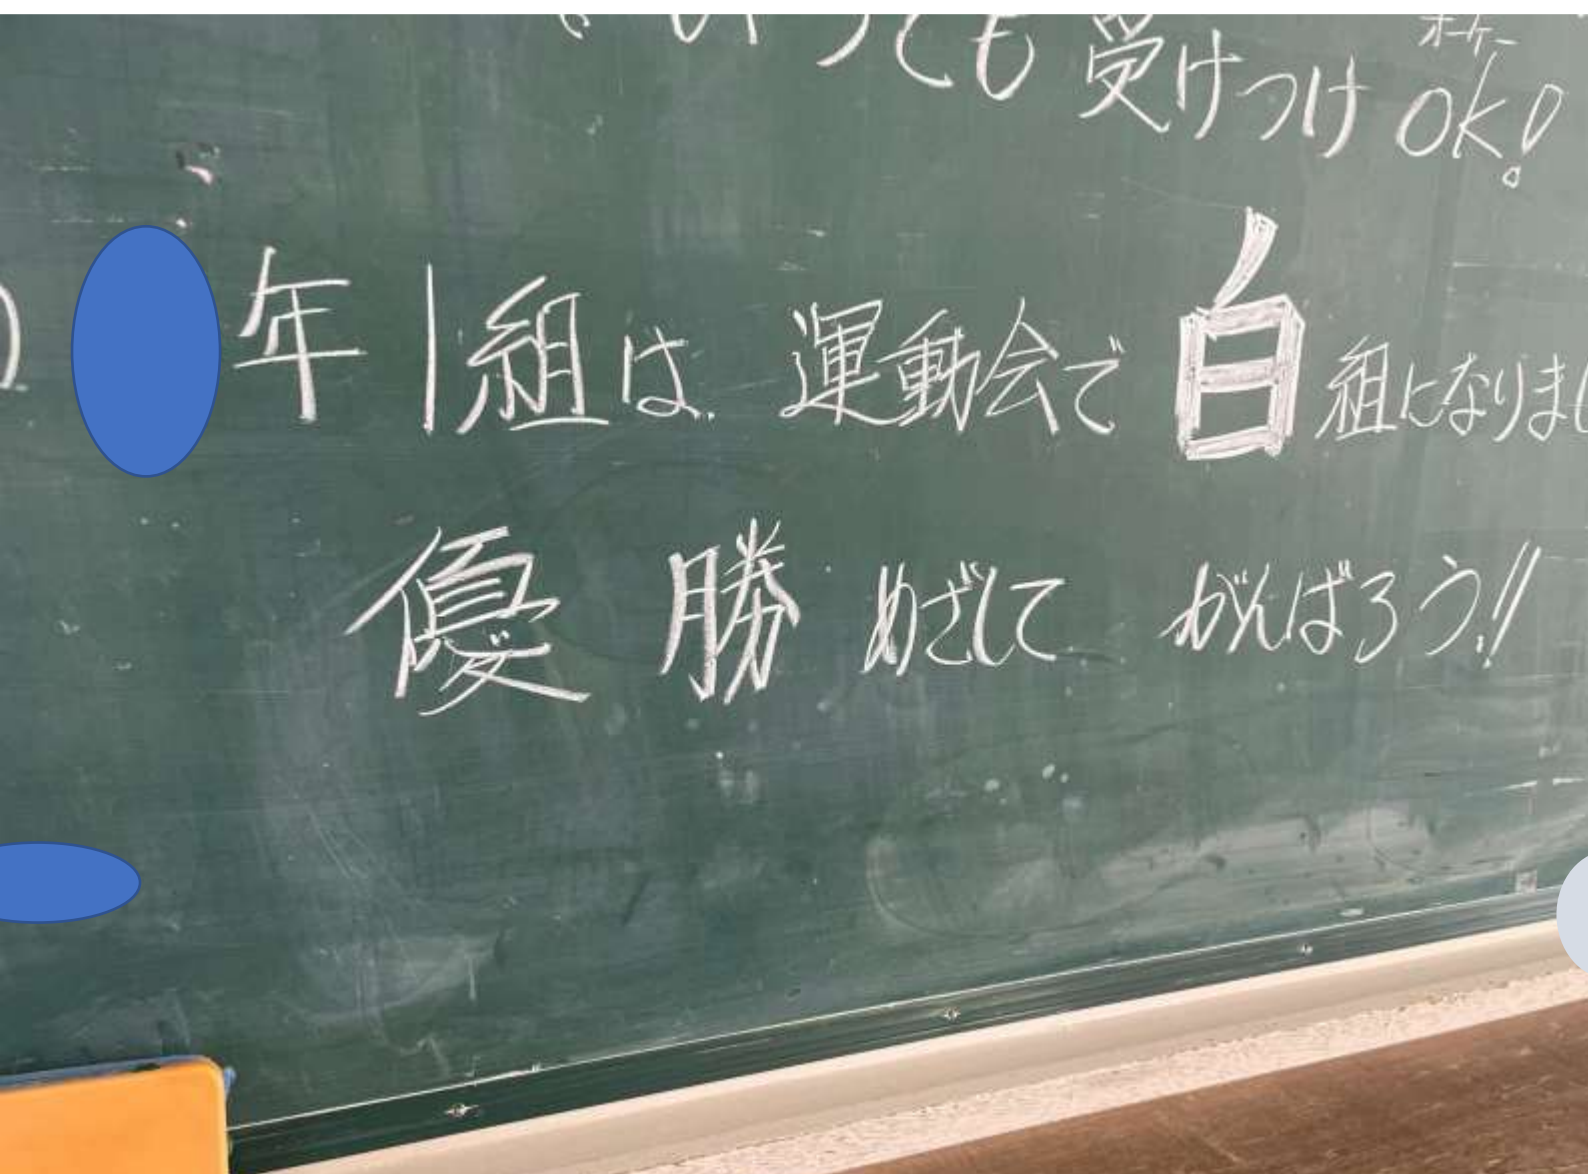 いつでも受けつけOK!
オーケー
年1組は、運動会で白組になりまし
優勝めざして がんばろう!!